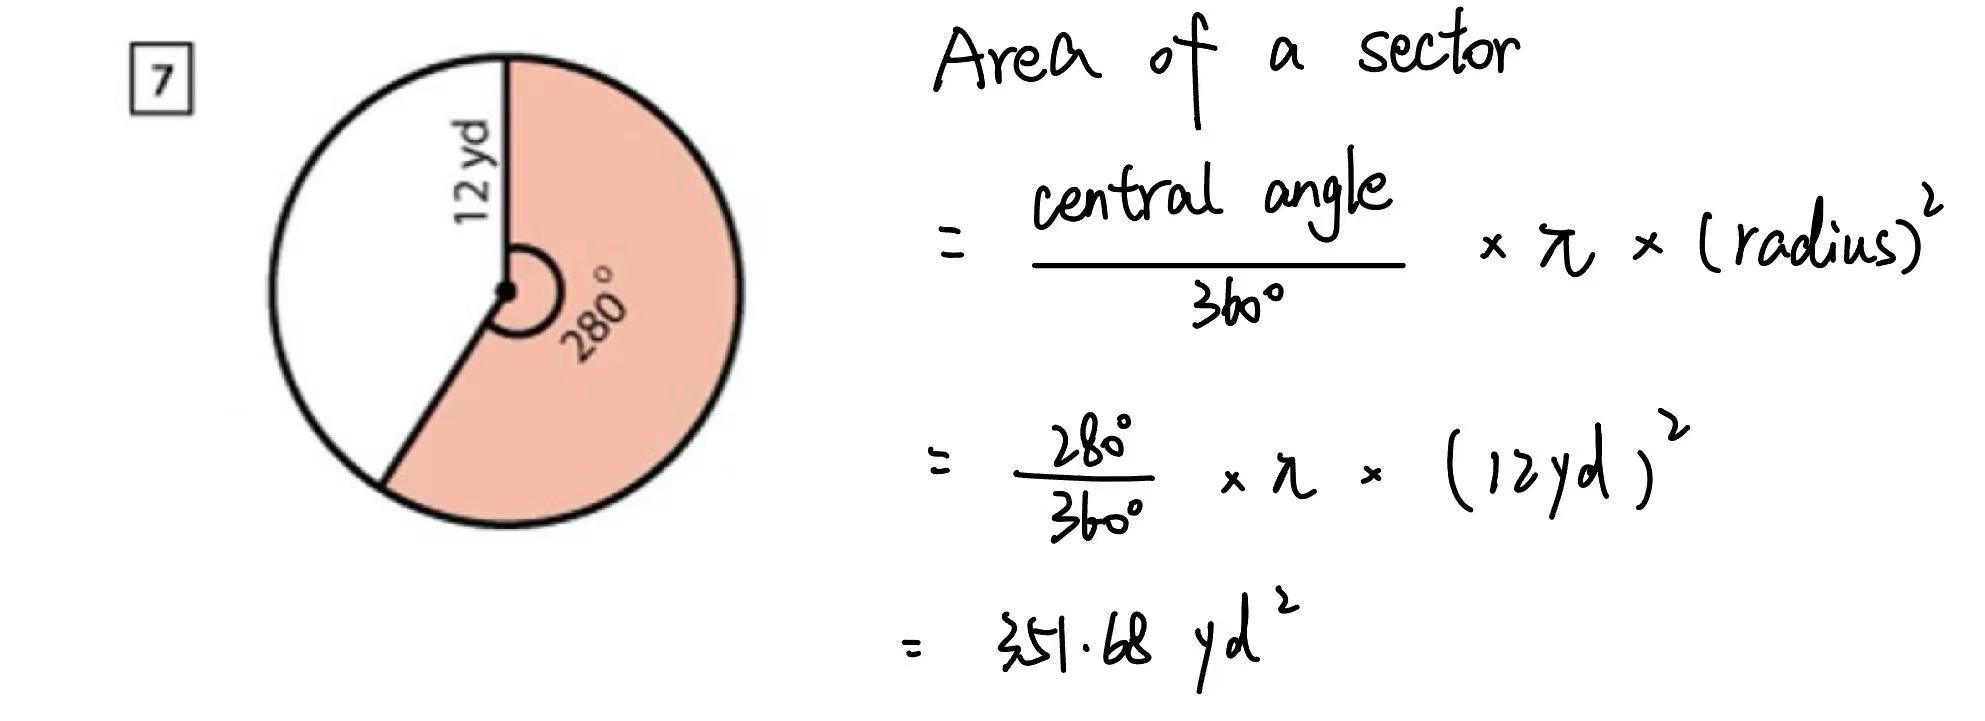 7
12 yd
280°
Area of a sector
= central angle / 360° × π × (radius)²
= 280° / 360° × π × (12yd)²
= 351.68 yd²